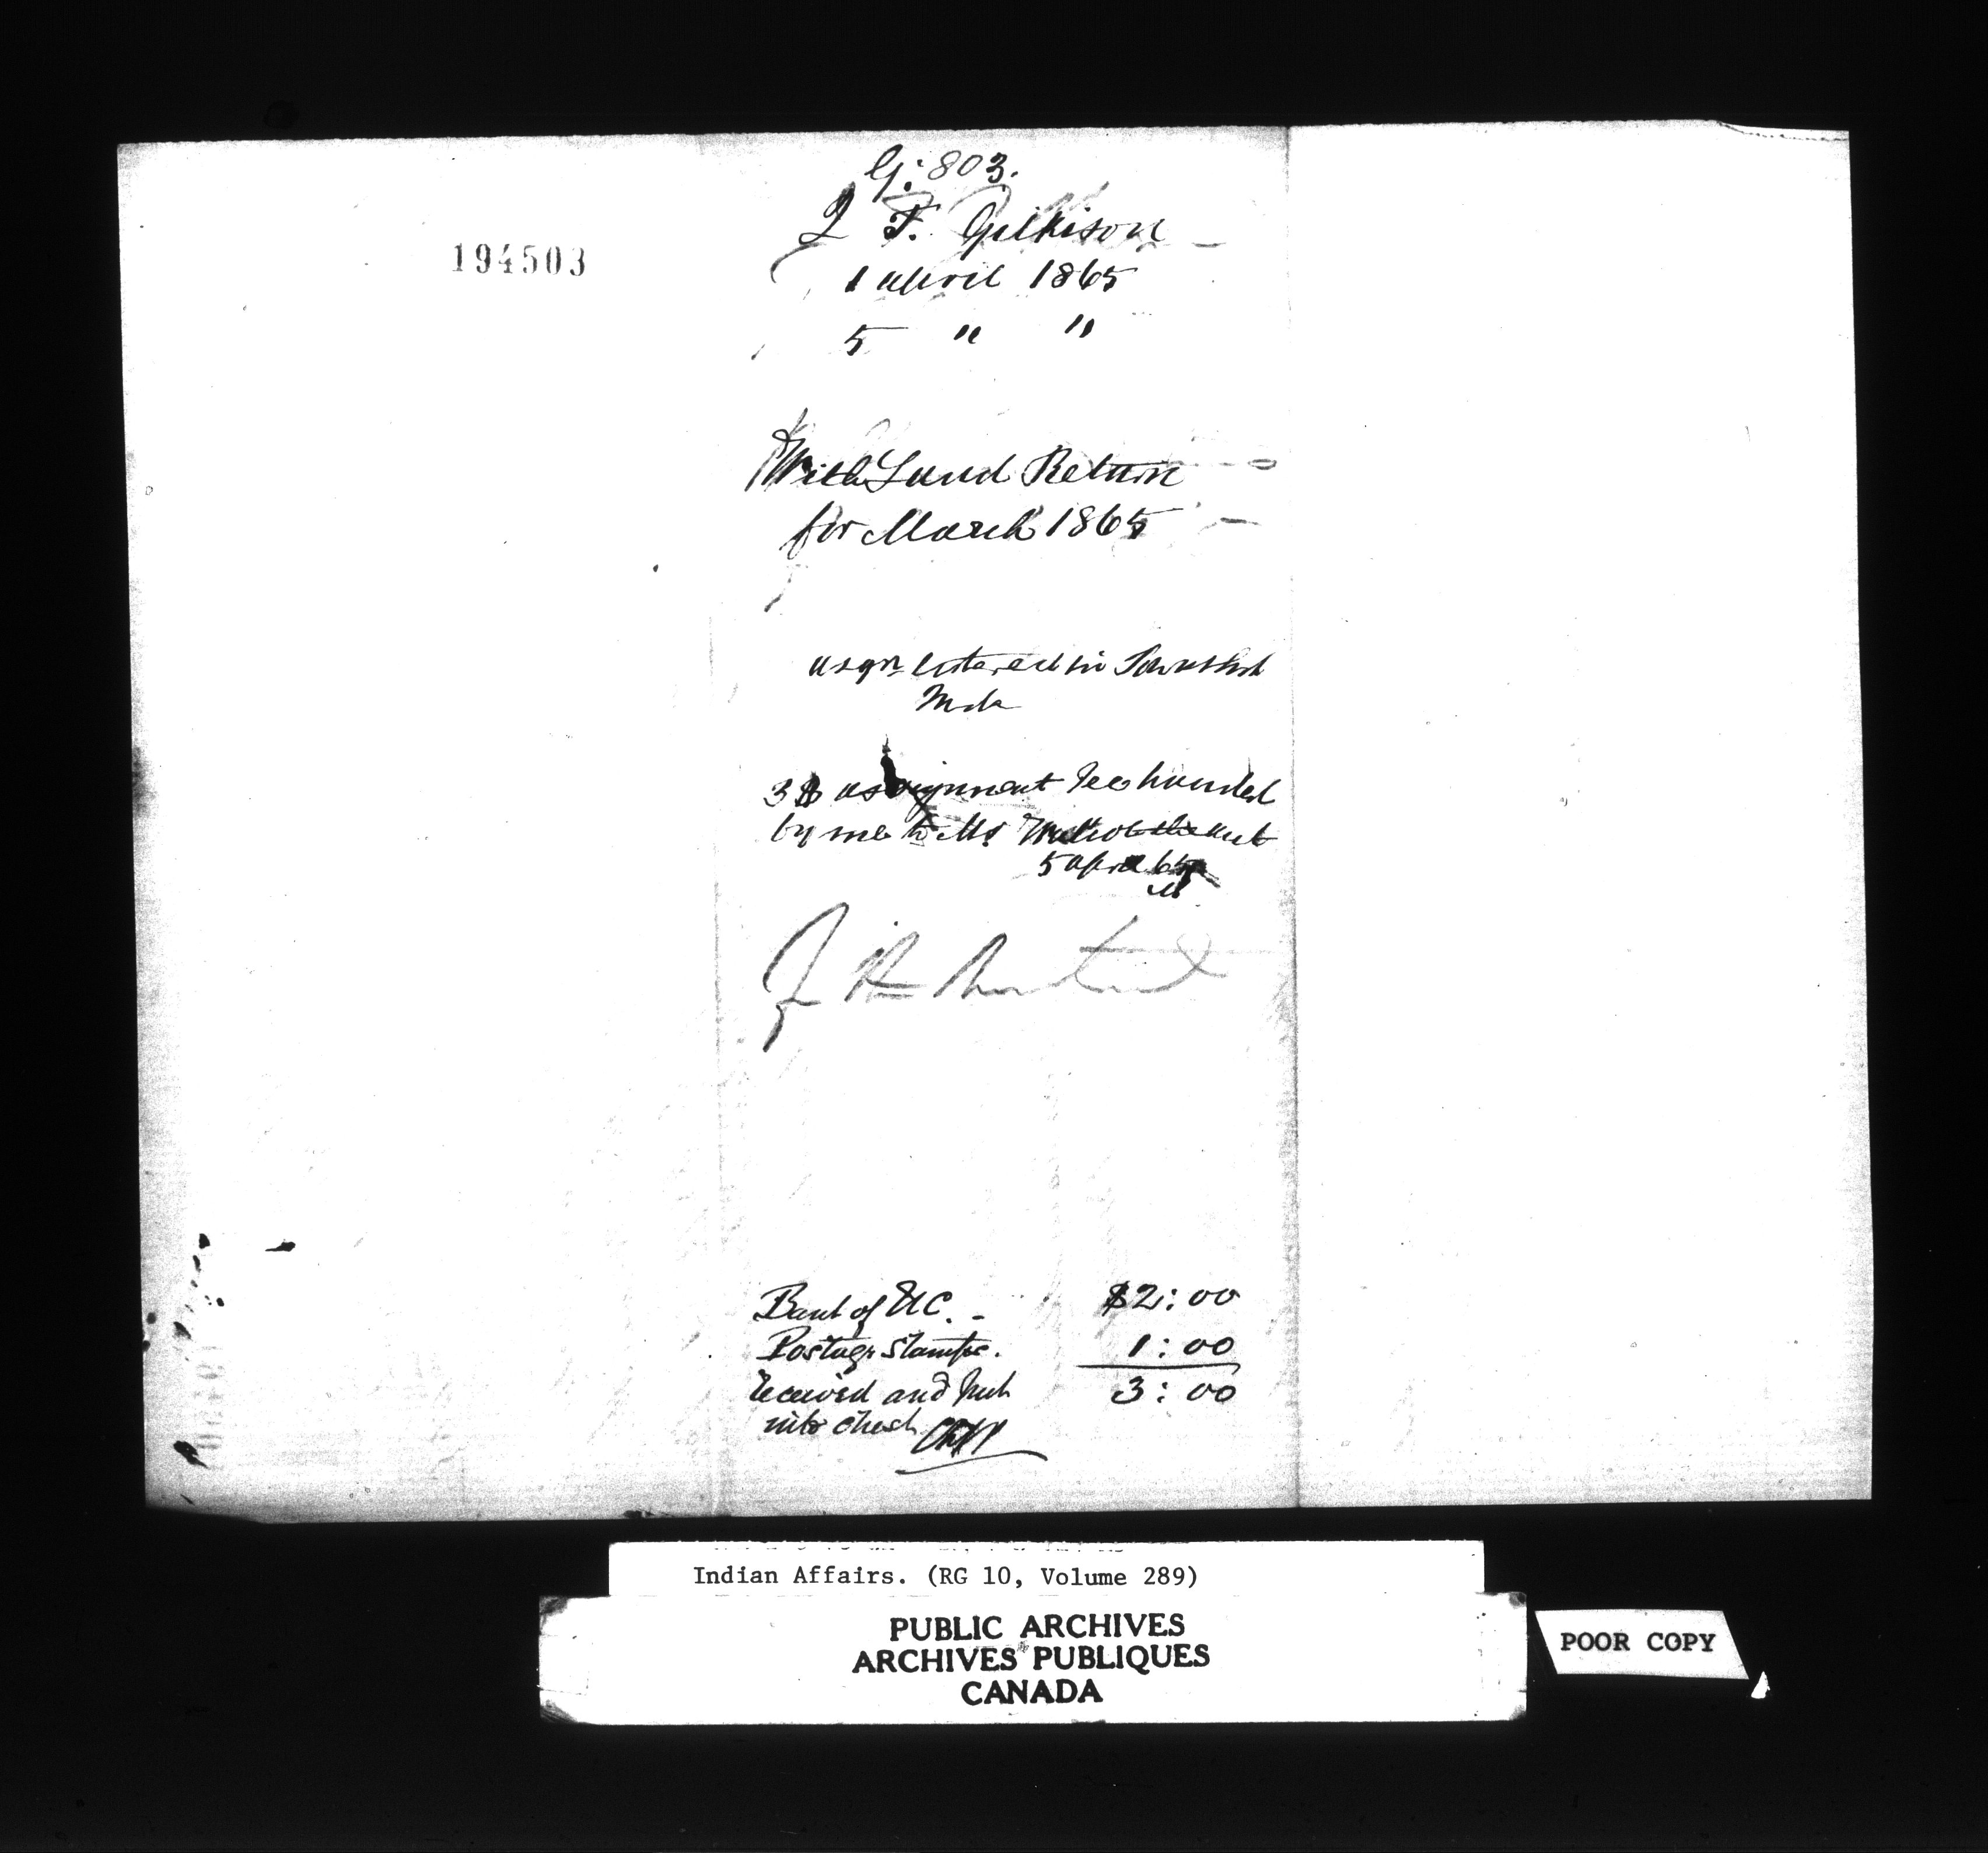 G. 803.
194503
J T. Gilkison
1 april 1865
5 " "
With Land Return
for March 1865
asgn entered in Township
Inda
3 $ assignment fee handed
by me to Mr
5 april 65
Bank of U C. - $2:00
Postage Stamps. 1:00
received and put 3:00
into chest
Indian Affairs. (RG 10, Volume 289)
PUBLIC ARCHIVES
ARCHIVES PUBLIQUES
CANADA
POOR COPY